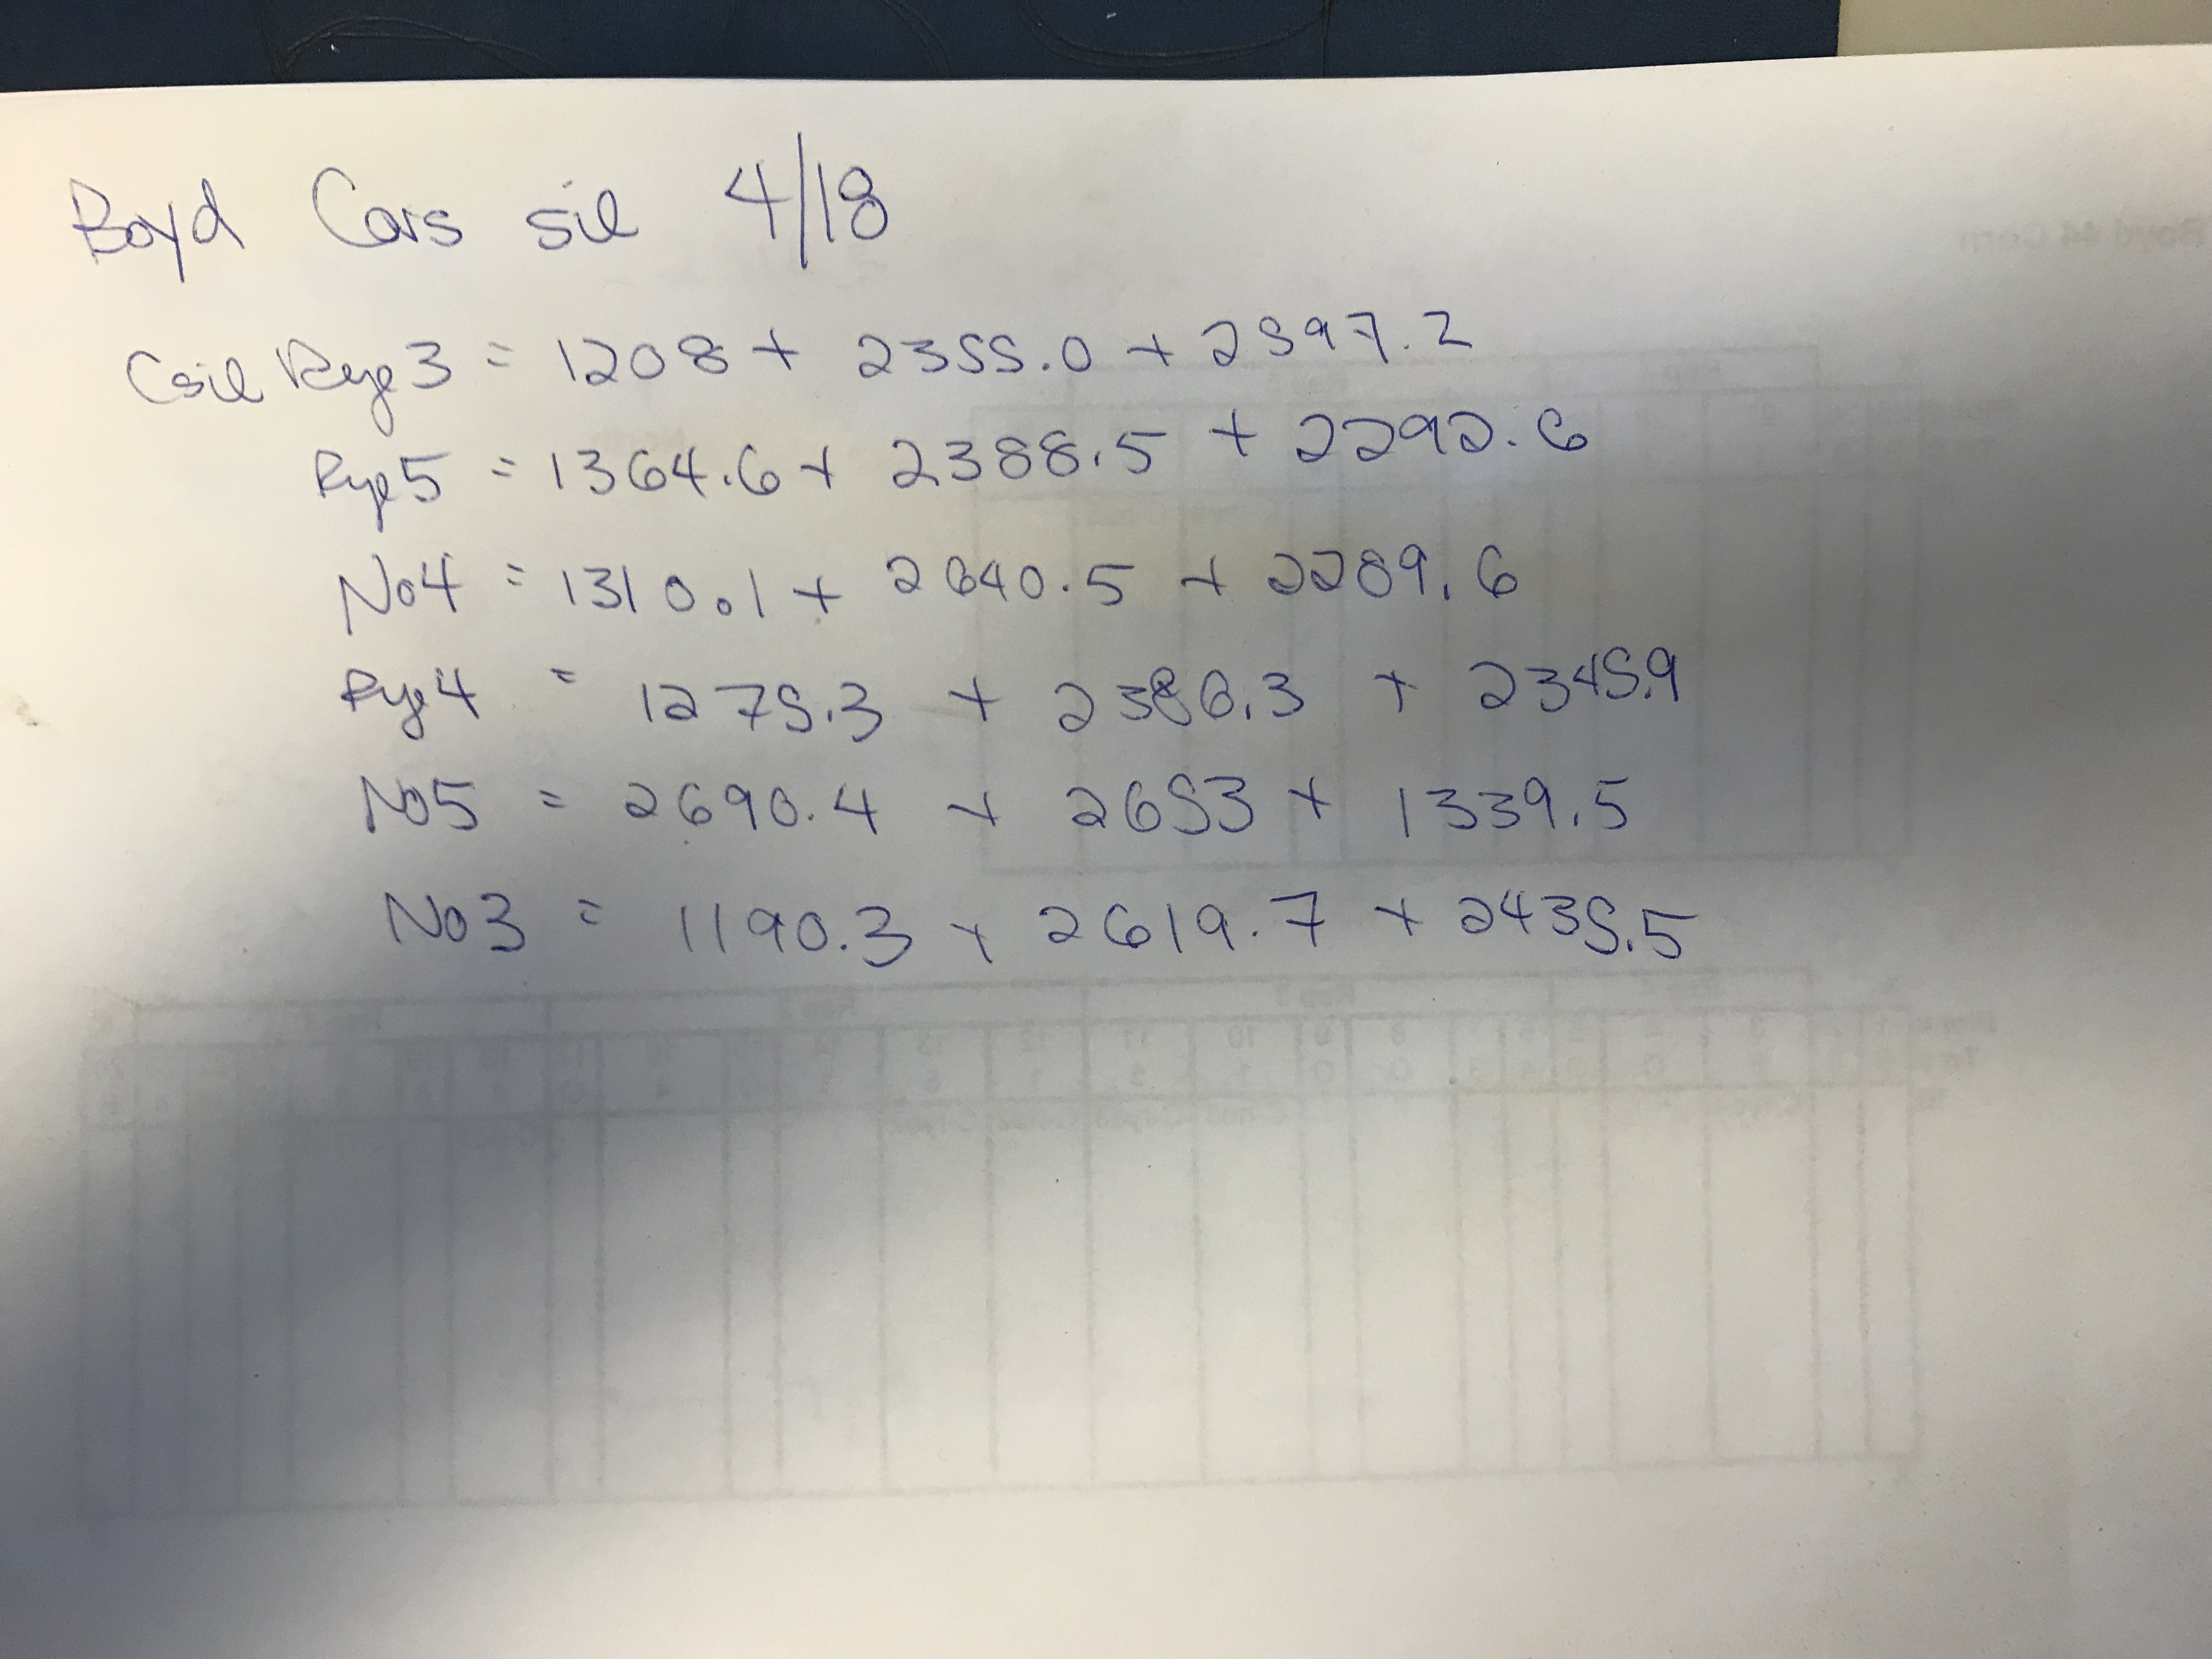 Boyd Cars sil 4/18
Csil Rye3 = 1208 + 2355.0 + 2597.2
Rye5 = 1364.6 + 2388.5 + 2292.6
No4 = 1310.1 + 2640.5 + 2289.6
Rye4 = 1275.3 + 2386.3 + 2345.9
No5 = 2690.4 + 2653 + 1339.5
No3 = 1190.3 + 2619.7 + 2435.5